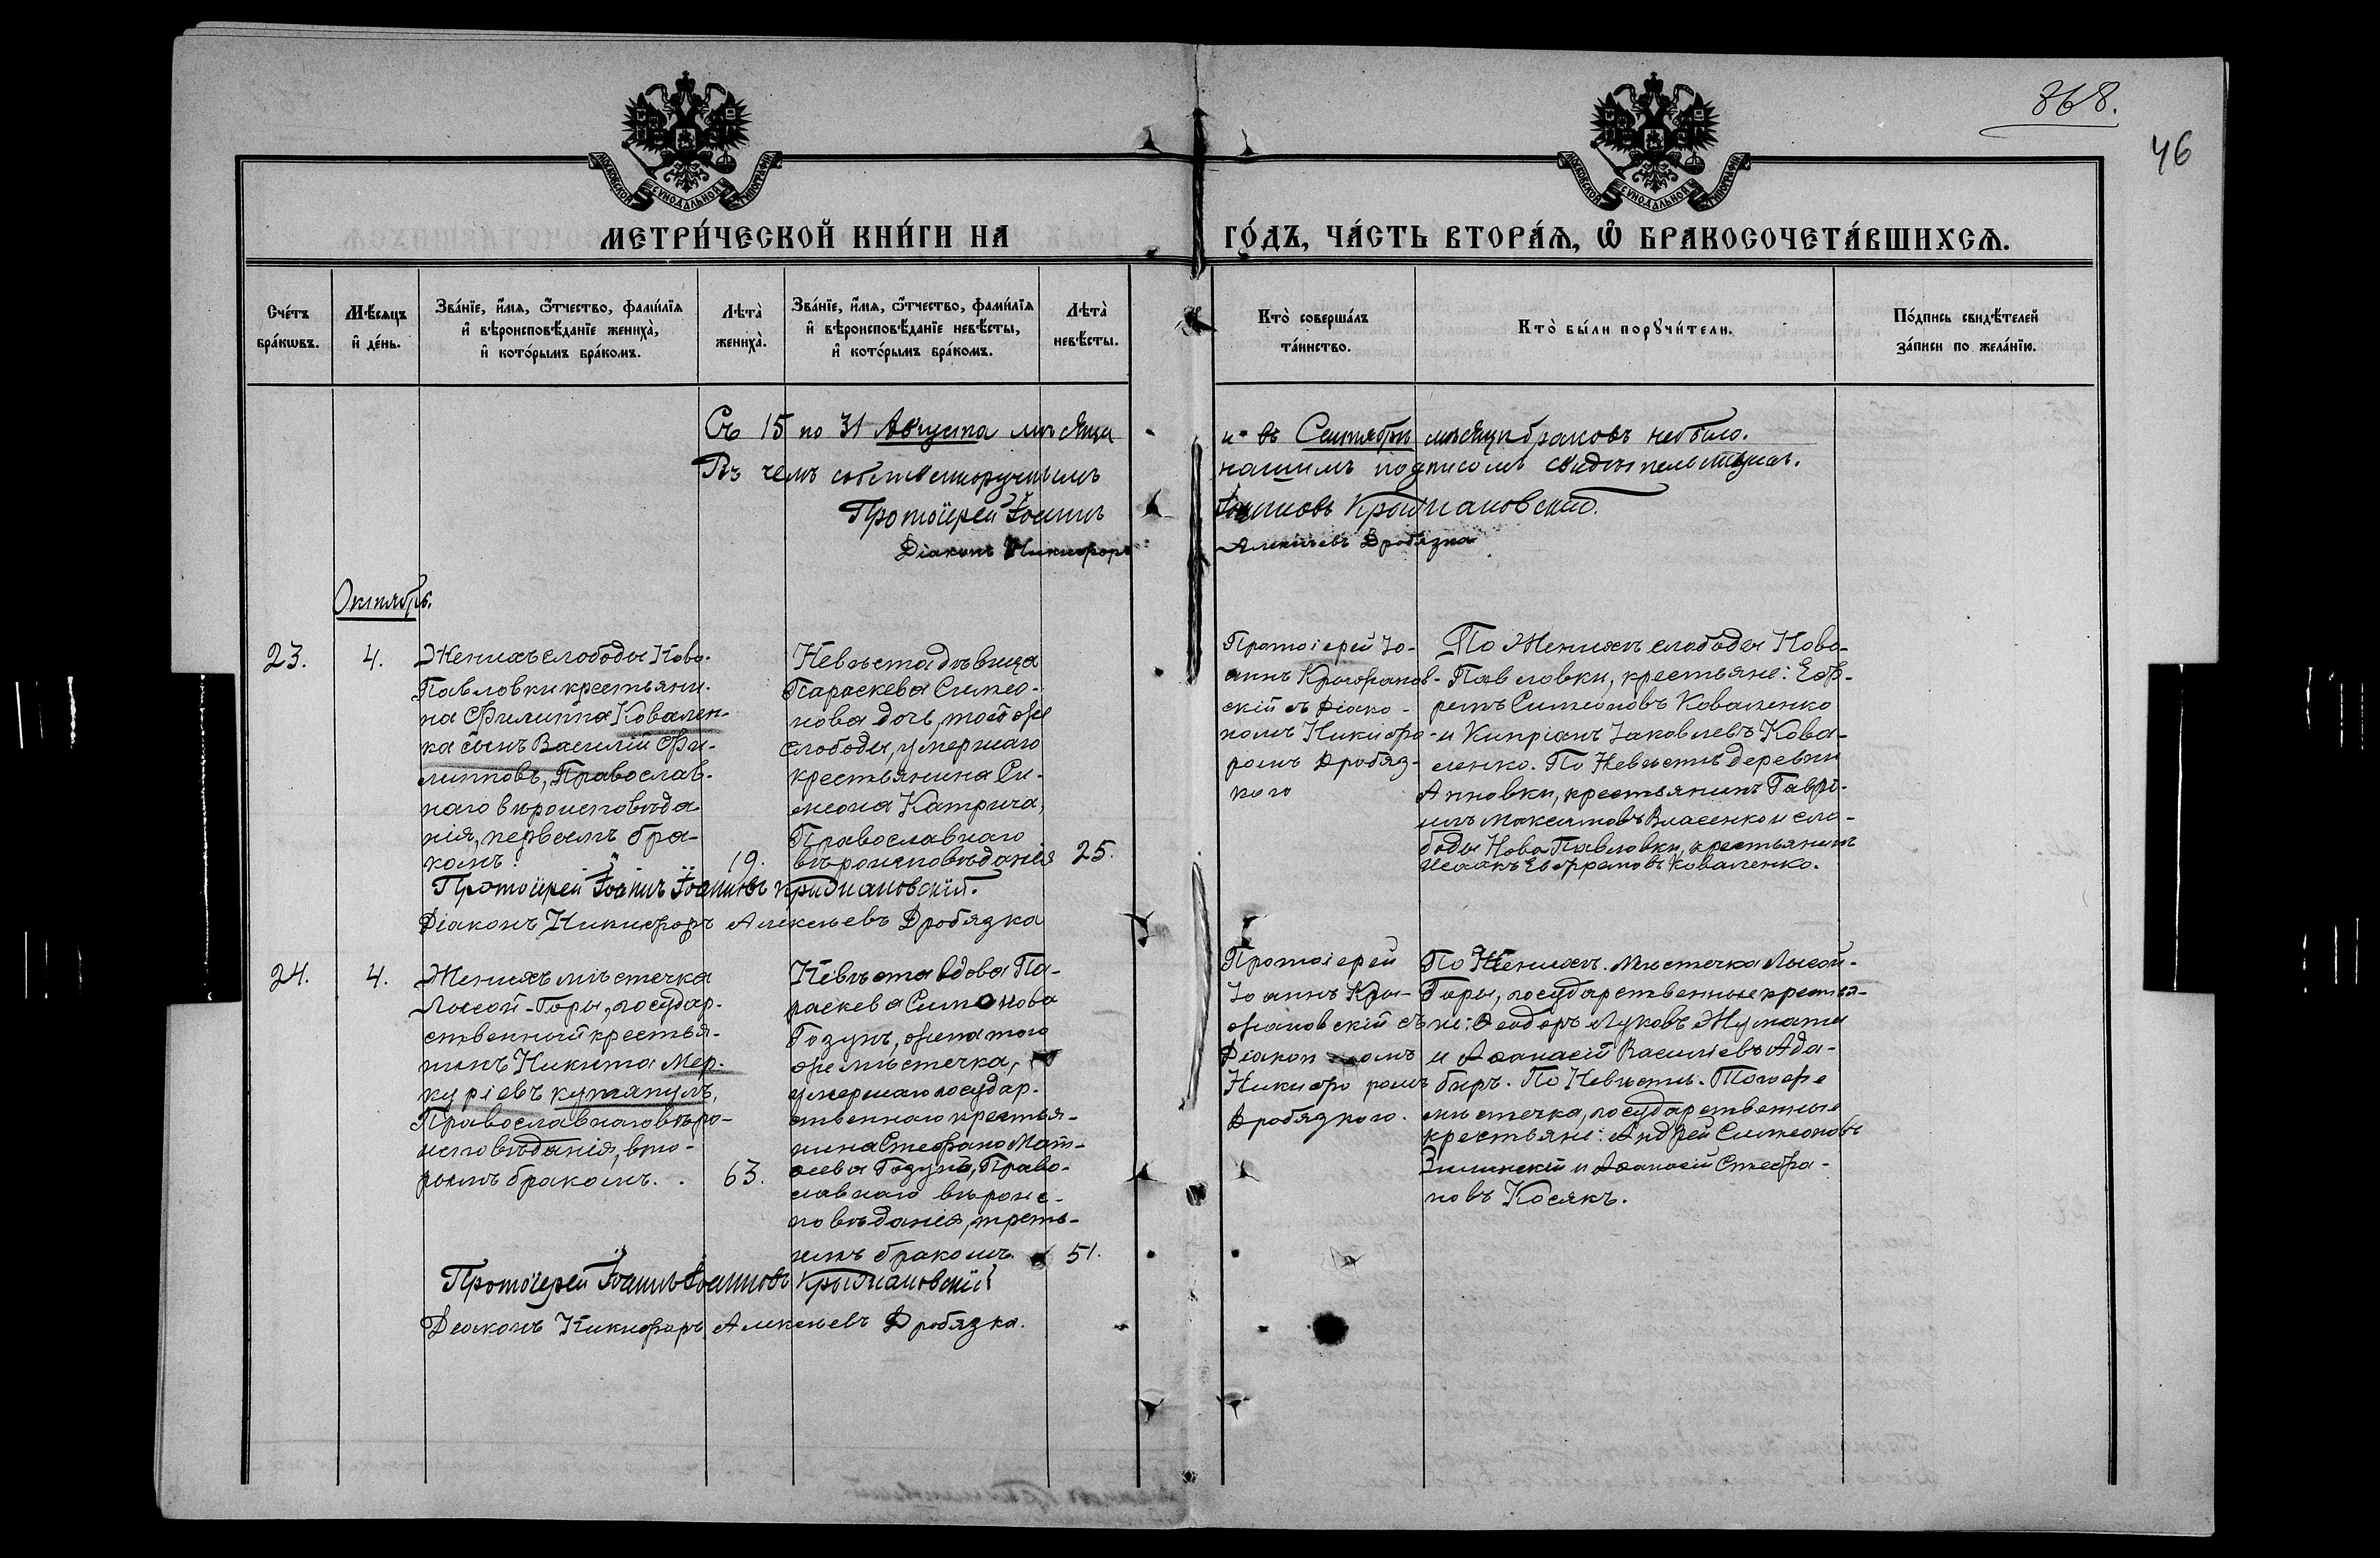 868.
46
МОСКОВСКОЙ СѴНОДАЛЬНОЙ ТИПОГРАФІИ
МОСКОВСКОЙ СѴНОДАЛЬНОЙ ТИПОГРАФІИ
МЕТРИ́ЧЕСКОЙ КНИ́ГИ НА
ГО́ДЪ, ЧА́СТЬ ВТОРА́Ѧ, Ѡ҆ БРАКОСОЧЕТА́ВШИХСѦ.
Сче́тъ
бра́кѡвъ.
Мѣ́сѧцъ
и҆ де́нь.
Зва́нїе, и҆́мѧ, ѻ҆́тчество, фами́лїѧ
и҆ вѣроисповѣ́данїе жениха̀,
и҆ кото́рымъ бра́комъ.
Лѣта̀
жениха̀.
Зва́нїе, и҆́мѧ, ѻ҆́тчество, фами́лїѧ
и҆ вѣроисповѣ́данїе невѣ́сты,
и҆ кото́рымъ бра́комъ.
Лѣта̀
невѣ́сты.
Кто̀ соверша́лъ
та́инство.
Кто̀ бы́ли порꙋчи́тели.
По́дпись свидѣ́телей
за́писи по жела́нїю.
Съ 15 по 31 Августа мѣсяца
и въ Сентябрѣ мѣсяцѣ браковъ небыло.
Въ чемъ собственноручнымъ
нашимъ подписомъ свидѣтельствуемъ.
Протоіерей Іоаннъ
Іоанновъ Крыжановскій.
Діаконъ Никифоръ
Алексѣевъ Дробязка
Октябрь.
23.
4.
Женихъ слободы Ново-
Павловки крестьяни-
на Филиппа Ковален-
ка сынъ Василій Фи-
липповъ, Православ-
наго вѣроисповѣда
нія, первымъ бра-
комъ.
19.
Невѣста дѣвица
Параскева Симео-
нова дочь, той же
слободы, умершаго
крестьянина Си-
меона Катрича,
Православнаго
вѣроисповѣданія
25.
Протоіерей Іо-
аннъ Крыжанов-
скій съ Діако-
номъ Никифо-
ромъ Дробяз-
кого
По Женихѣ слободы Ново-
Павловки, крестьяне: Еф-
ремъ Симеоновъ Коваленко
и Кипріанъ Іаковлевъ Кова-
ленко. По Невѣстѣ деревни
Анновки, крестьянинъ Гаврі-
илъ Максимовъ Власенко и сло-
боды Ново Павловки, крестьянинъ
Исаакъ Ефремовъ Коваленко.
Протоіерей Іоаннъ Іоанновъ Крыжановскій.
Діаконъ Никифоръ Алексѣевъ Дробязка
24.
4.
Женихъ мѣстечка
Лысой-Горы, государ-
ственный крестья-
нинъ Никита Мер-
куріевъ
Православнаго вѣро-
исповѣданія, вто-
рымъ бракомъ.
63.
Невѣста вдова Па-
раскева Симонова
Гозунъ, жена того
же мѣстечка,
умершаго государ-
ственнаго крестья-
нина Стефана Мат-
ѳеева Гозунъ, Право-
славнаго вѣроис-
повѣданія, треть-
имъ бракомъ.
51.
Протоіерей
Іоаннъ Кры-
жановскій съ
Діакономъ
Никифоромъ
Дробязкого.
По Женихѣ. Мѣстечка Лысой-
Горы, государственные крестья-
не: Ѳеодоръ Луковъ
и Аѳанасій Василіевъ Ада-
биръ. По Невѣстѣ. Того же
мѣстечка, государственные
крестьяне: Андрей Симеоновъ
Зилинскій и Аѳанасій Стефа-
новъ Косякъ.
Протоіерей Іоаннъ Іоанновъ Крыжановскій
Діаконъ Никифоръ Алексѣевъ Дробязка.